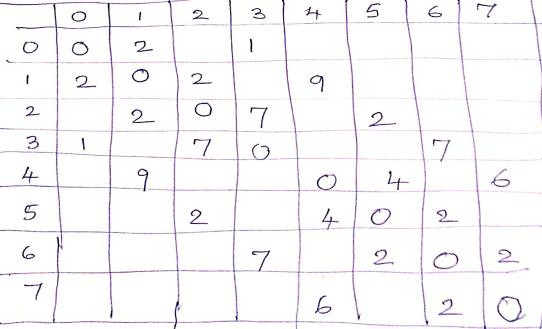 0 1 2 3 4 5 6 7
0 0 2 1
1 2 0 2 9
2 2 0 7 2
3 1 7 0 7
4 9 0 4 6
5 2 4 0 2
6 7 2 0 2
7 6 2 0